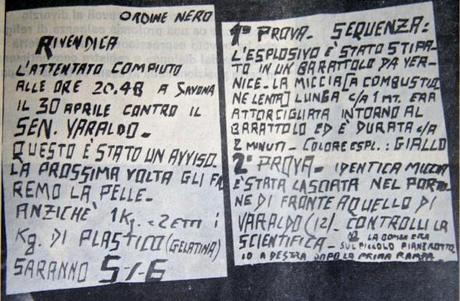 ORDINE NERO
RIVENDICA
L'ATTENTATO COMPIUTO
ALLE ORE 20.48 A SAVONA
IL 30 APRILE CONTRO IL
SEN. VARALDO-
QUESTO È STATO UN AVVISO.
LA PROSSIMA VOLTA GLI FA
REMO LA PELLE-
ANZICHÈ 1 Kg. E 2 ETTI i
Kg. DI PLASTICO (GELATINA)
SARANNO 5/-6
1ª PROVA- SEQUENZA:
L'ESPLOSIVO È STATO STIPA-
TO IN UN BARATTOLO DA VER-
NICE. LA MICCIA (A COMBUSTIO
NE LENTA) LUNGA C/A 1 MT. ERA
ATTORCIGLIATA INTORNO AL
BARATTOLO ED È DURATA C/A
2 MINUTI- COLORE ESPL.: GIALLO
2ª PROVA- IDENTICA MICCIA
È STATA LASCIATA NEL PORTO-
NE DI FRONTE AQUELLO DI
VARALDO (12)- CONTROLLI LA
SCIENTIFICA- LA BOMBA ERA
SUL PICCOLO PIANEROTTO
IO A DESTRA DOPO LA PRIMA RAMPA-